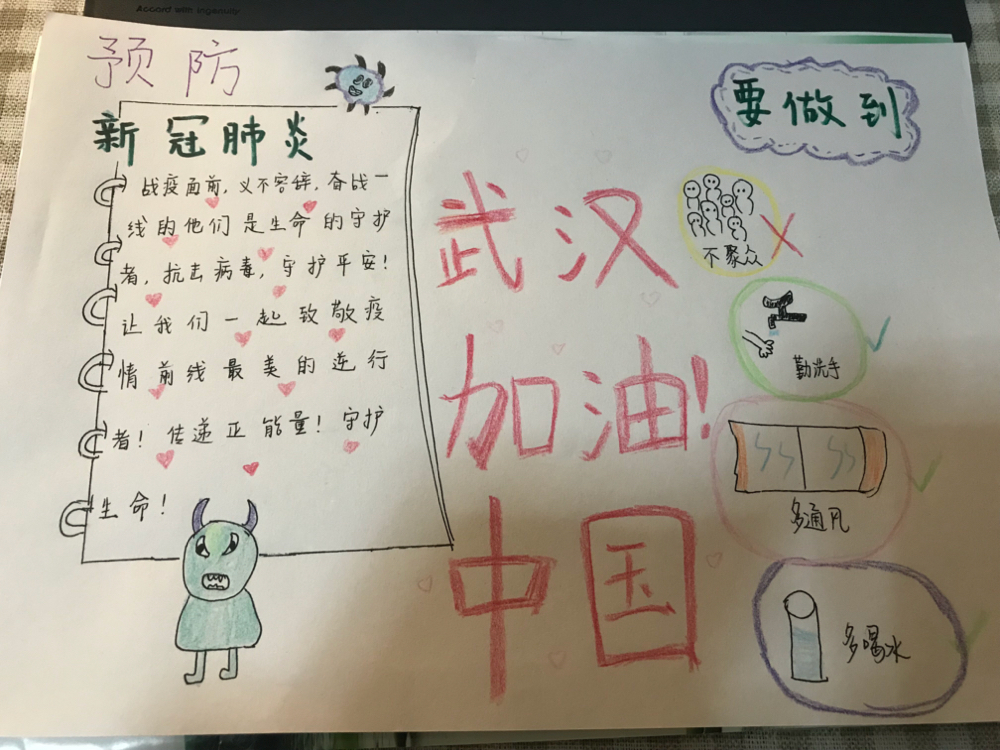 Accord with ingenuity
预防
新冠肺炎
战疫面前，义不容辞，奋战一
线的他们是生命的守护
者，抗击病毒，守护平安！
让我们一起致敬疫
情前线最美的逆行
者！传递正能量！守护
生命！
武汉
加油！
中国
要做到
不聚众
勤洗手
多通风
多喝水